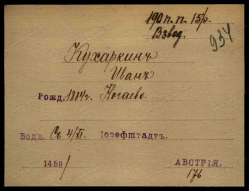 190 п. п. 15/р.
Взвод.
934
Кухаркинъ
Иванъ
Рожд. 1884 г. Когаево.
Вод. Съ 4/XI. Іозефштадтъ.
1459/
АВСТРІЯ.
176